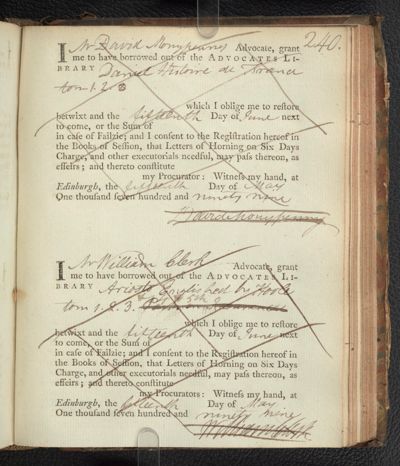 240.
I Mr David Monypenny Advocate, grant
me to have borrowed out of the ADVOCATES LI-
BRARY Daniel Histoire de France
tom 1. 2. 3
which I oblige me to restore
betwixt and the fifteenth Day of June next
to come, or the Sum of
in case of Failzie; and I consent to the Registration hereof in
the Books of Session, that Letters of Horning on Six Days
Charge, and other executorials needful, may pass thereon, as
effeirs; and thereto constitute
my Procurator: Witness my hand, at
Edinburgh, the fifteenth Day of May
One thousand seven hundred and ninety nine
David Monypenny
I Mr William Clerk Advocate, grant
me to have borrowed out of the ADVOCATES LI-
BRARY Ariosto Englished by Hoole
tom 1. 2. 3. & 5th
which I oblige me to restore
betwixt and the fifteenth Day of June next
to come, or the Sum of
in case of Failzie; and I consent to the Registration hereof in
the Books of Session, that Letters of Horning on Six Days
Charge, and other executorials needful, may pass thereon, as
effeirs; and thereto constitute
my Procurators: Witness my hand, at
Edinburgh, the fifteenth Day of May
One thousand seven hundred and ninety nine
William Clerk